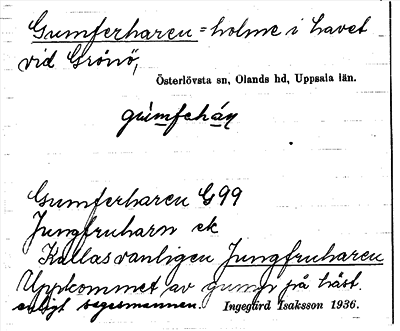 Gumferharen = holme i havet
vid Grönö,
Österlövsta sn, Olands hd, Uppsala län.
gúmfehán
Gumferharen G99
Jungfruharn ek
Kallas vanligen Jungfruharen
Uppkommet av gump på häst.
enligt sagesmannen. Ingegärd Isaksson 1936.